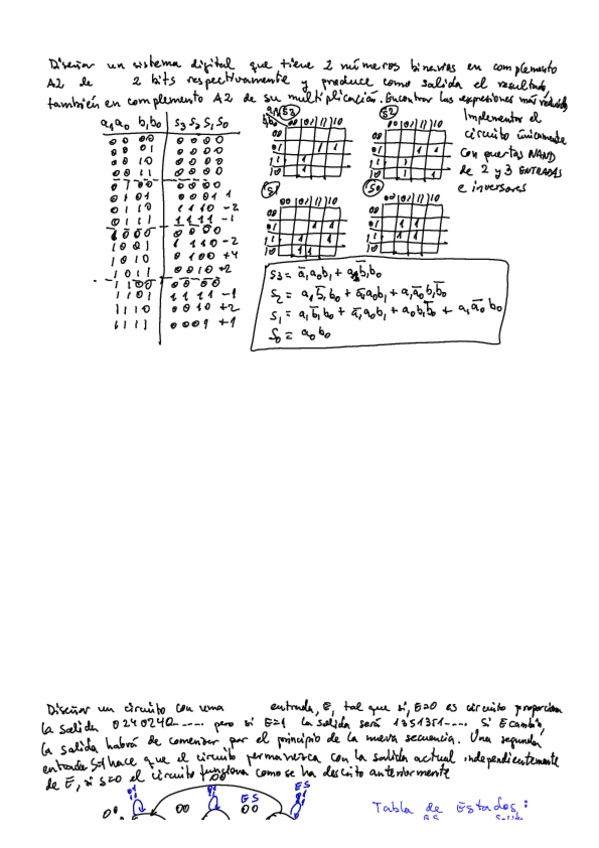 Diseñar un sistema digital que tiene 2 números binarios en complemento
A2 de 2 bits respectivamente y produce como salida el resultado
también en complemento A2 de su multiplicación. Encontrar las expresiones más reducidas
Implementar el
circuito únicamente
con puertas NAND
de 2 y 3 ENTRADAS
e inversores
a₁a₀ b₁b₀ S₃ S₂ S₁ S₀
00 00 0000
00 01 0000
00 10 0000
00 11 0000
01 00 0000
01 01 0001 1
01 10 1110 -2
01 11 1111 -1
10 00 0000
10 01 1110 -2
10 10 0100 +4
10 11 0010 +2
11 00 0000
11 01 1111 -1
11 10 0010 +2
11 11 0001 +1
S3
00 01 11 10
00
01 1 1
11 1
10 1
S2
00 01 11 10
00
01 1 1
11
10
S1
00 01 11 10
00
01 1 1
11 1 1
10 1 1
S0
00 01 11 10
00
01 1 1
11 1 1
10
S₃ = a̅₁a₀b₁ + a₁b̅₁b₀
S₂ = a₁b̅₁b₀ + a̅₁a₀b₁ + a₁a̅₀b₁b̅₀
S₁ = a₁b̅₁b₀ + a̅₁a₀b₁ + a₀b₁b̅₀ + a₁a̅₀b₀
S₀ = a₀b₀
Diseñar un circuito con una entrada, E, tal que si, E=0 es circuito proporciona
la salida 0240240..... pero si E=1 la salida será 1351351.... Si E cambia,
la salida habrá de comenzar por el principio de la nueva secuencia. Una segunda
entrada S=1 hace que el circuito permanezca con la salida actual independientemente
de E, si S=0 el circuito funciona como se ha descrito anteriormente
00
ES
00
ES
00
Tabla de Estados: